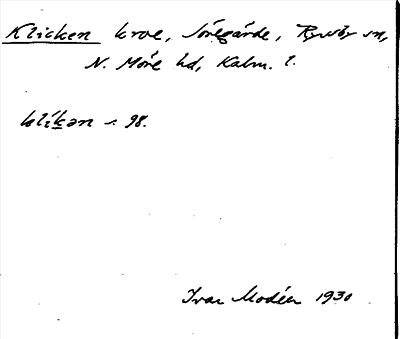 Klicken krog, Söregärde, Ryssby sn,
N. Möre hd, Kalm. l.
klíkan ~ 98.
Ivar Modéer 1930